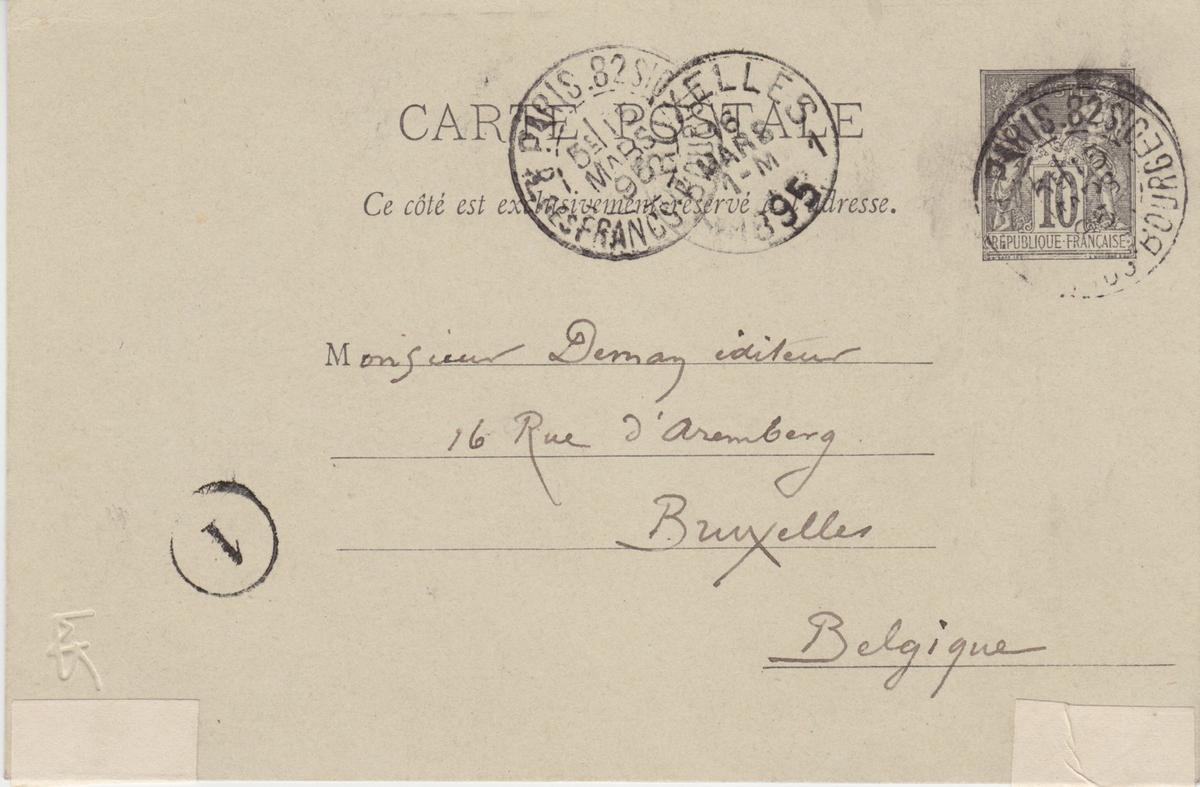 CARTE POSTALE
Ce côté est exclusivement réservé à l'adresse.
PARIS.82
MARS
95
BRUXELLES 1
16
MARS
1-M
95
PARIS.82
BOURGEOIS
10
RÉPUBLIQUE·FRANÇAISE
Monsieur Deman éditeur
16 Rue d'Aremberg
Bruxelles
Belgique
1